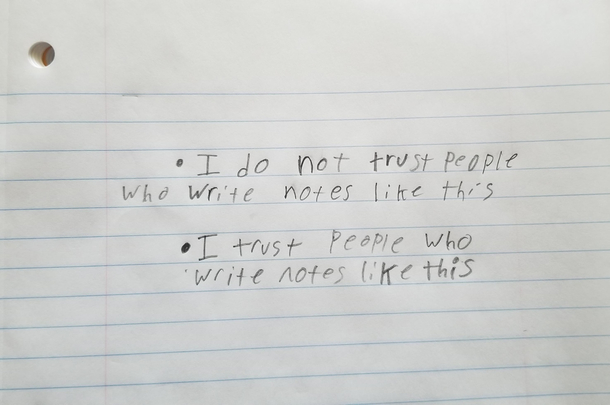 • I do not trust people
who write notes like this
• I trust people who
write notes like this